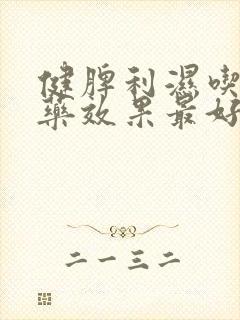 健脾利濕喫
藥效果最好
二一三二